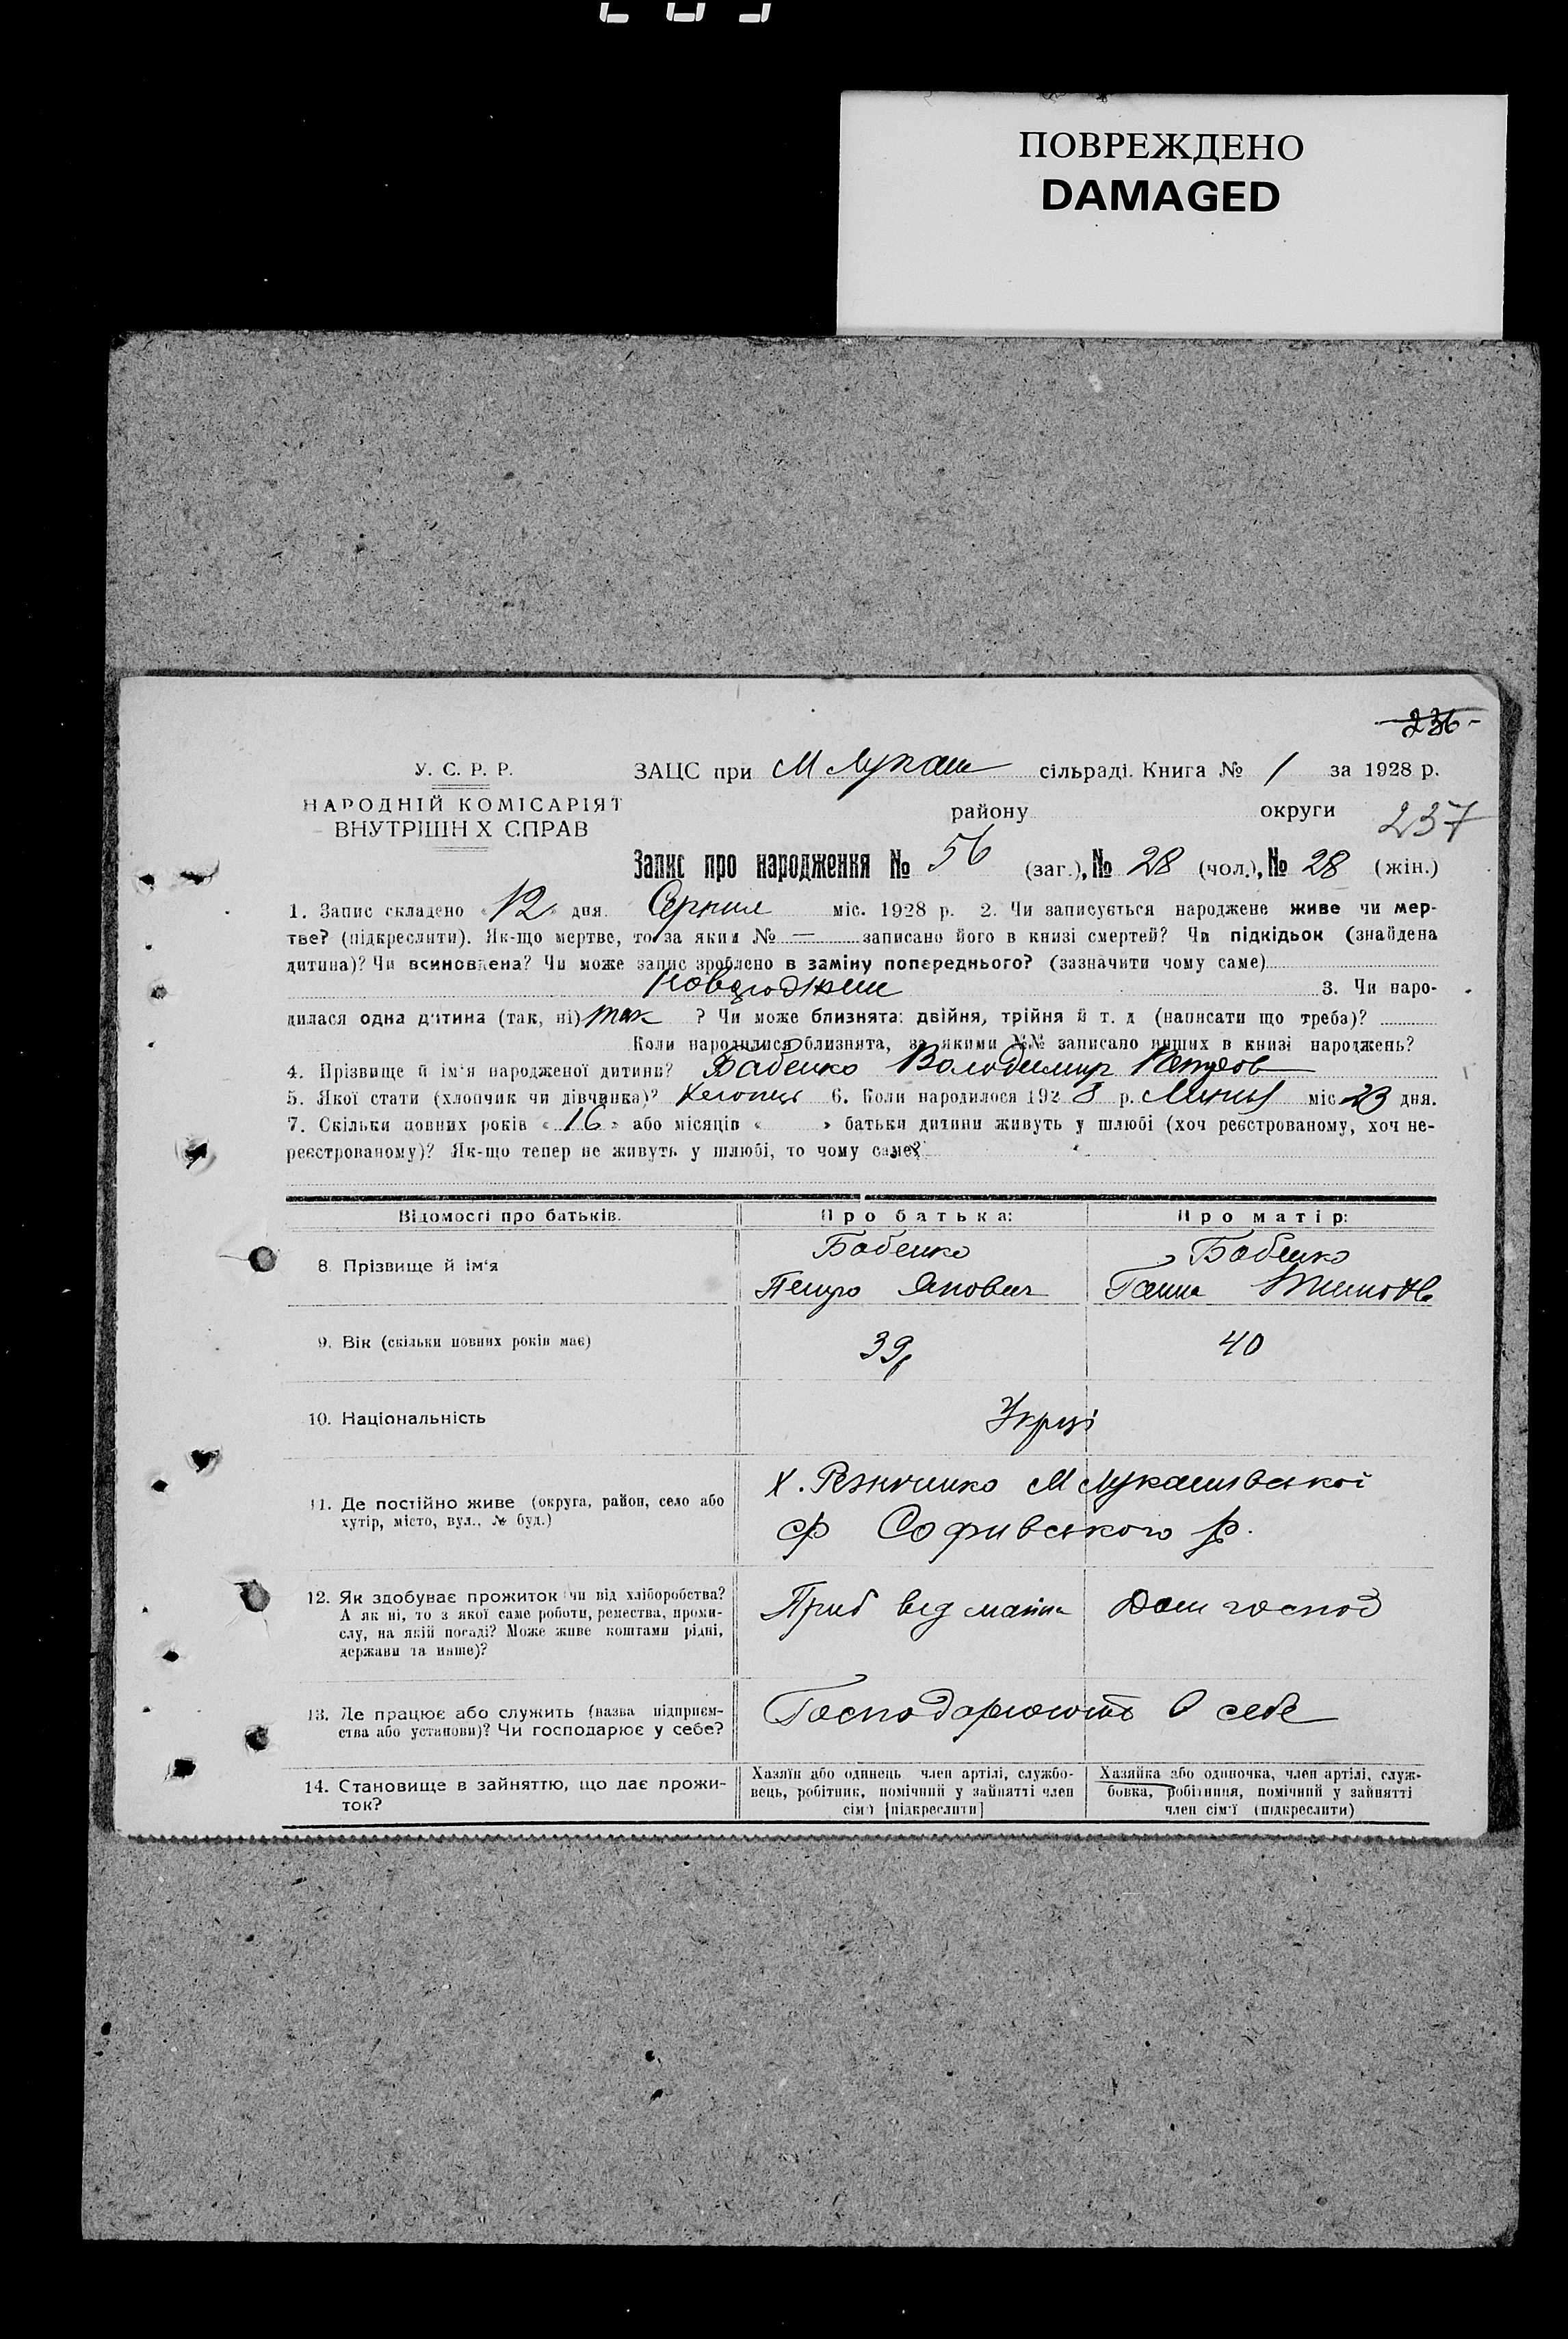 ПОВРЕЖДЕНО
DAMAGED
236-
У. С. Р. Р.
ЗАЦС при М Лукаш сільраді. Книга № 1 за 1928 р.
НАРОДНІЙ КОМІСАРІЯТ
ВНУТРІШН Х СПРАВ
району округи 237
Запис про народження № 56 (заг.), № 28 (чол.), № 28 (жін.)
1. Запис складено «12» дня Серпня міс. 1928 р. 2. Чи записується народжене живе чи мер-
тве? (підкреслити). Як-що мертве, то за яким № — записано його в книзі смертей? Чи підкідьок (знайдена
дитина)? Чи всиновлена? Чи може запис зроблено в заміну попереднього? (зазначити чому саме)
3. Чи наро-
дилася одна дитина (так, ні) так ? Чи може близнята: двійня, трійня й т. д (написати що треба)?
Коли народилися близнята, за якими №№ записано инших в книзі народжень?
4. Прізвище й ім'я народженої дитини? Бабенко Володимир Петров
5. Якої стати (хлопчик чи дівчинка)? Хлопць 6. Коли народилося 1928 р. Липня міс 23 дня.
7. Скільки повних років «16» або місяців « » батьки дитини живуть у шлюбі (хоч реєстрованому, хоч не-
реєстрованому)? Як-що тепер не живуть у шлюбі, то чому саме?
Відомості про батьків. Про батька: Про матір:
8. Прізвище й ім'я Бабенко Бабенко
Петро Якович Ганна
9. Вік (скільки повних років має) 39 40
10. Національність Укрці
11. Де постійно живе (округа, район, село або
хутір, місто, вул., № буд.)
Х. М Лукашівської
с/р Софивського р.
12. Як здобуває прожиток чи від хліборобства?
А як ні, то з якої саме роботи, ремества, проми-
слу, на якій посаді? Може живе коштами рідні,
держави та инше)?
Приб від майна Дом господ
13. Де працює або служить (назва підприєм-
ства або установи)? Чи господарює у себе?
Господарюють в себе
14. Становище в зайняттю, що дає прожи-
ток?
Хазяїн або одинець член артілі, службо-
вець, робітник, помічний у зайнятті член
сім'ї [підкреслити]
Хазяйка або одиночка, член артілі, служ-
бовка, робітниця, помічний у зайнятті
член сім'ї (підкреслити)